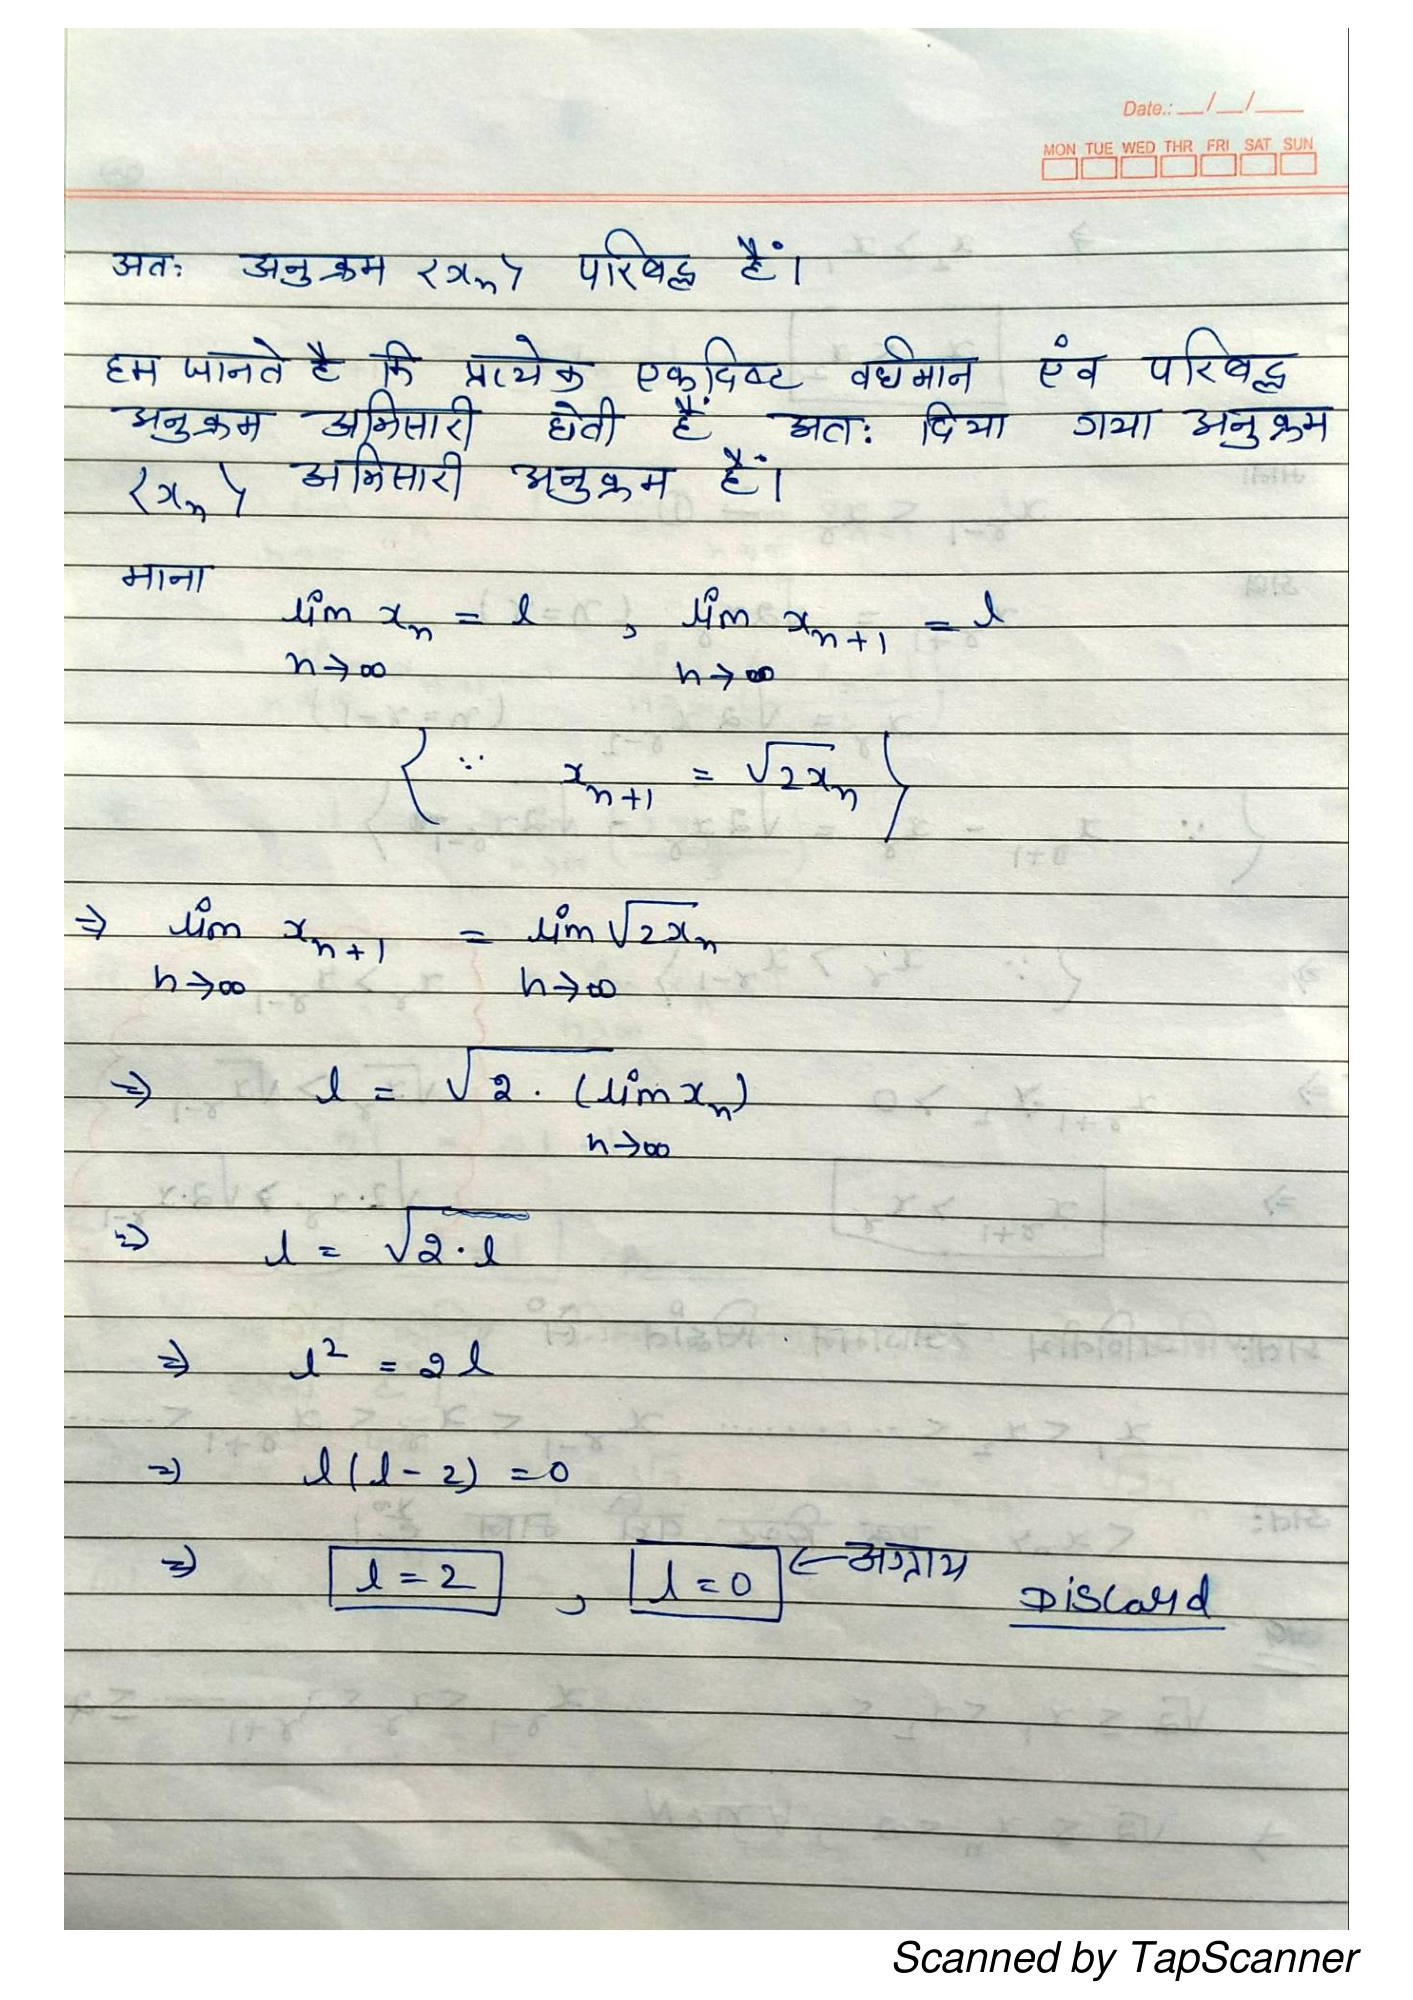 Date.: __/__/____
MON TUE WED THR FRI SAT SUN
अतः अनुक्रम <xₙ> परिबद्ध हैं।
हम जानते है कि प्रत्येक एकदिष्ट वर्धमान एंव परिबद्ध
अनुक्रम अभिसारी होती हैं अतः दिया गया अनुक्रम
<xₙ> अभिसारी अनुक्रम हैं।
माना
lim xₙ = l , lim xₙ₊₁ = l
n→∞ n→∞
{ ∵ xₙ₊₁ = √2xₙ }
⇒ lim xₙ₊₁ = lim √2xₙ
n→∞ n→∞
⇒ l = √2. (lim xₙ)
n→∞
⇒ l = √2.l
⇒ l² = 2l
⇒ l(l-2) = 0
⇒ l = 2 , l = 0 ← अग्राह्य Discard
Scanned by TapScanner